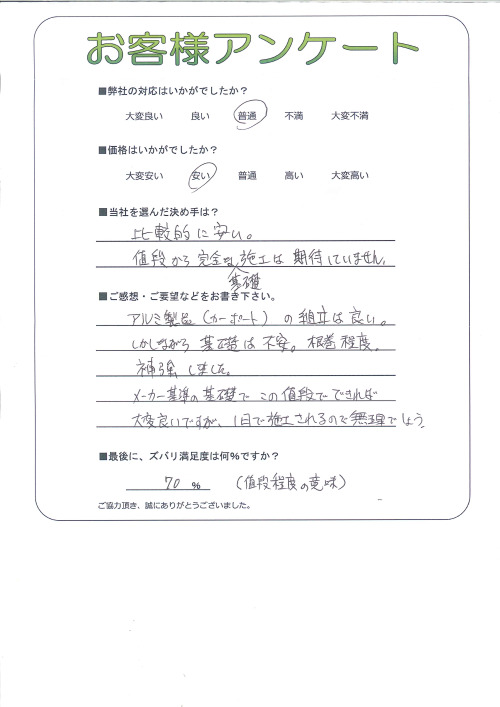 お客様アンケート
■弊社の対応はいかがでしたか？
大変良い 良い 普通 不満 大変不満
■価格はいかがでしたか？
大変安い 安い 普通 高い 大変高い
■当社を選んだ決め手は？
比較的に安い。
値段から完全な施工は期待していません。
基礎
■ご感想・ご要望などをお書き下さい。
アルミ製品（カーポート）の組立は良い。
しかしながら基礎は不安。根巻程度。
補強しました。
メーカー基準の基礎でこの値段でできれば
大変良いですが、1日で施工されるので無理でしょう
■最後に、ズバリ満足度は何%ですか？
70 % （値段程度の意味）
ご協力頂き、誠にありがとうございました。